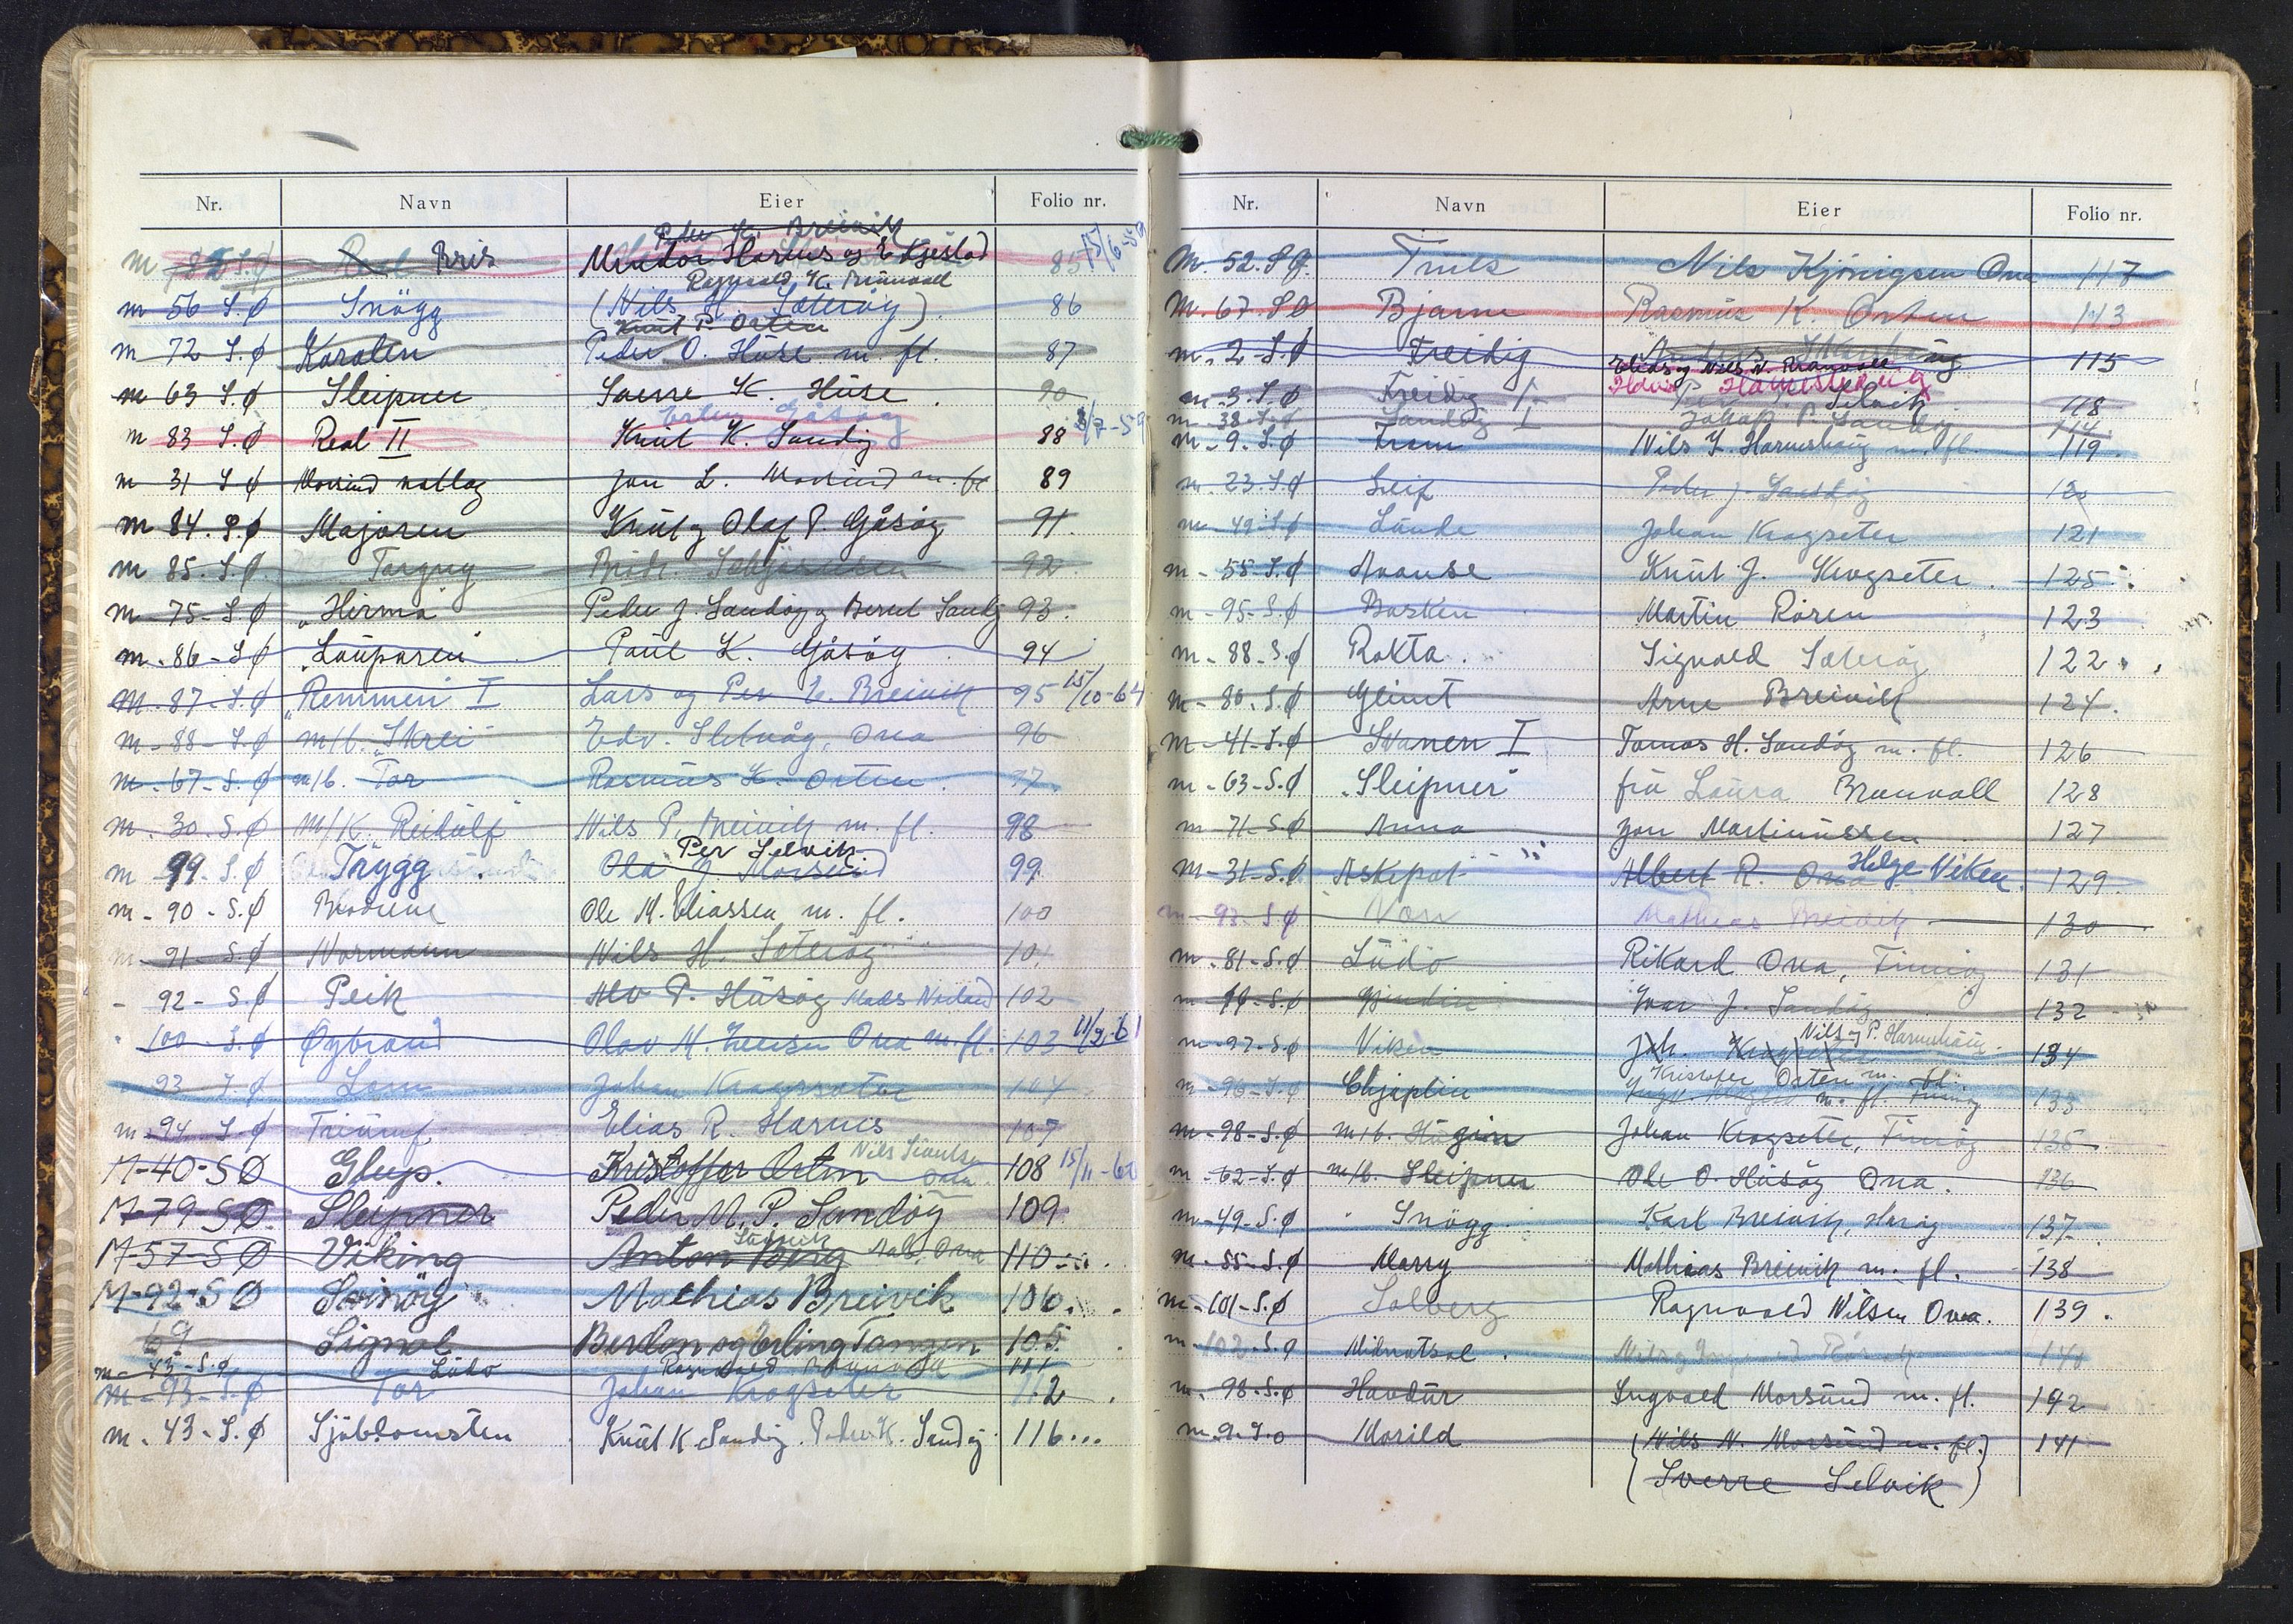 Nr. Navn Eier Folio nr.
Peder K. Breivik
M 82 S.Ø Real Bris Meidor Harnes og E Kjestad 85 15/6-59
Ragnvald K. Brunvoll
m 56 S.Ø Snögg (Nils H. Sæterøy) 86
Knut P. Orten
m 72 S.Ø Karolen Peder O. Huse m. fl. 87
m 63 S.Ø Sleipner Sverre K. Huse 90
Erling Gåsøy
m 83 S.Ø Real II Knut K. Sandøy 88 3/7-59
m 31 S Ø Morsund notlag Jon L. Morsund m. fl. 89
m 84. S.Ø Majoren Knut og Olaf P. Gåsøy 91.
m 85. S.Ø Torgny Brødr. 92.
m 75-S.Ø „Hirma" Peder J. Sandøy og Bernt Sandøy 93.
m. 86-S Ø „Lauparen" Paul K. Gåsøy 94
M-87-S.Ø „Remmen" I Lars og Per E. Breivik 95 15/10-64
m-88-S.Ø m/b. „Skrei" Edv. Sletvåg, Ona 96
m-67-S.Ø m/b. Tor Rasmus K. Orten 97.
m. 30. S.Ø M/K. Reidulf Nils P. Breivik m. fl. 98
Per Selvik
m 99. S.Ø Trygg Ola J Morsund 99
m-90-S.Ø Brodrene Ole M. Eliassen m. fl. 100
m-91-S.Ø Normann Nils H. Sæterøy 101
- 92- S.Ø Peik P. Husøy Mads Nerland 102
" 100-S.Ø Øybrand Olav M. Ona m. fl. 103 11/2-61
93-S.Ø Lom Johan Krogsæter 104
m-94-S.Ø Triumf Elias R. Harnes 107
M-40-SØ Glup. Kristoffer Orten Nils Ona 108 15/11-60
M-79-SØ Sleipner Peder M. P. Sandøy 109
M-57-SØ Viking Anton Berg Ona 110
M-92-SØ Svinøy Mathias Breivik 106.
69 Signal Berdon og Erling Tangen 105
m-43-S.Ø Ludo Ragnvald Brunvoll 111
m-93-S.Ø Tor Johan Krogseter 112
m. 43-S.Ø Sjöblomsten Knut K Sandøy. Peder K. Sandøy 116...
Nr. Navn Eier Folio nr.
M. 52. S Ø. Truls Nils Kjönigsen Ona 117
M. 67. S Ø Bjarne Rasmus K. Orten 113
m. 2-S.Ø Freidig Elias og Nils N. Brunvoll 115
m-3. S.Ø Freidig I Selvik 118
m-38-S.Ø Sandøy I Johan P. Sandøy 114.
m-9. S.Ø Trom Nils K. Harnshaug m. fl. 119
m-23. S.Ø Leif Peder J. Sandøy 120
m-49-S.Ø Lunde Johan Krogseter 121
m-55-S.Ø Avanse Knut J. Krogseter 125
m-95-S.Ø Basken Martin Rören 123
m-88-S.Ø Rokta Sigvald Sæterøy 122
m-80. S.Ø Glimt Arne Breivik 124.
m-41-S.Ø Svanen I Tomas H. Sandøy m. fl. 126
m-63-S.Ø „Sleipner" fru Laura Brunvoll 128
m-71-S.Ø Anna Jon Martinussen 127
m-31-S.Ø Askepot Albert R. Ona Helge Viken. 129.
m-93-S.Ø Von Mathias Breivik 130
m. 81-S.Ø Ludo Rikard Ona, Finnøy 131
m-99-S.Ø Gjendin Ivar J. Sandøy 132
m-97-S.Ø Viken Joh. Krogseter Nils og P. Harnshaug 134
Kristofer Orten m. fl.
m-96-S.Ø Chjeplin m. fl. Finnøy 133
m-98-S.Ø m/b. Hugin Johan Krogseter, Finnøy 135
m-62-S.Ø m/b. Sleipner Ole O. Husøy Ona. 136
m-49-S.Ø " Snögg Karl Breivik, Harøy 137
m-55-S.Ø Marry Mathias Breivik m. fl. 138
m-101-S.Ø Solberg Ragnvald Nilsen Ona. 139.
m-102-S.Ø Midnatsol Nils og Ingvald 140
m. 98-S.Ø Havdur Ingvald Morsund m. fl. 142
m. 9. S.Ø Morild (Nils N. Morsund m. fl.) 141
(Sverre Selvik)